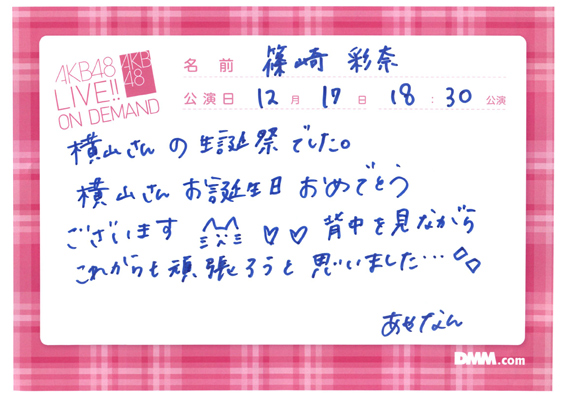 AKB48
LIVE!!
ON DEMAND
AKB
48
名前 篠崎 彩奈
公演日 12月17日 18:30公演
横山さんの生誕祭でした。
横山さんお誕生日おめでとう
ございます ♡♡ 背中を見ながら
これからも頑張ろうと思いました…
あやなん
DMM.com